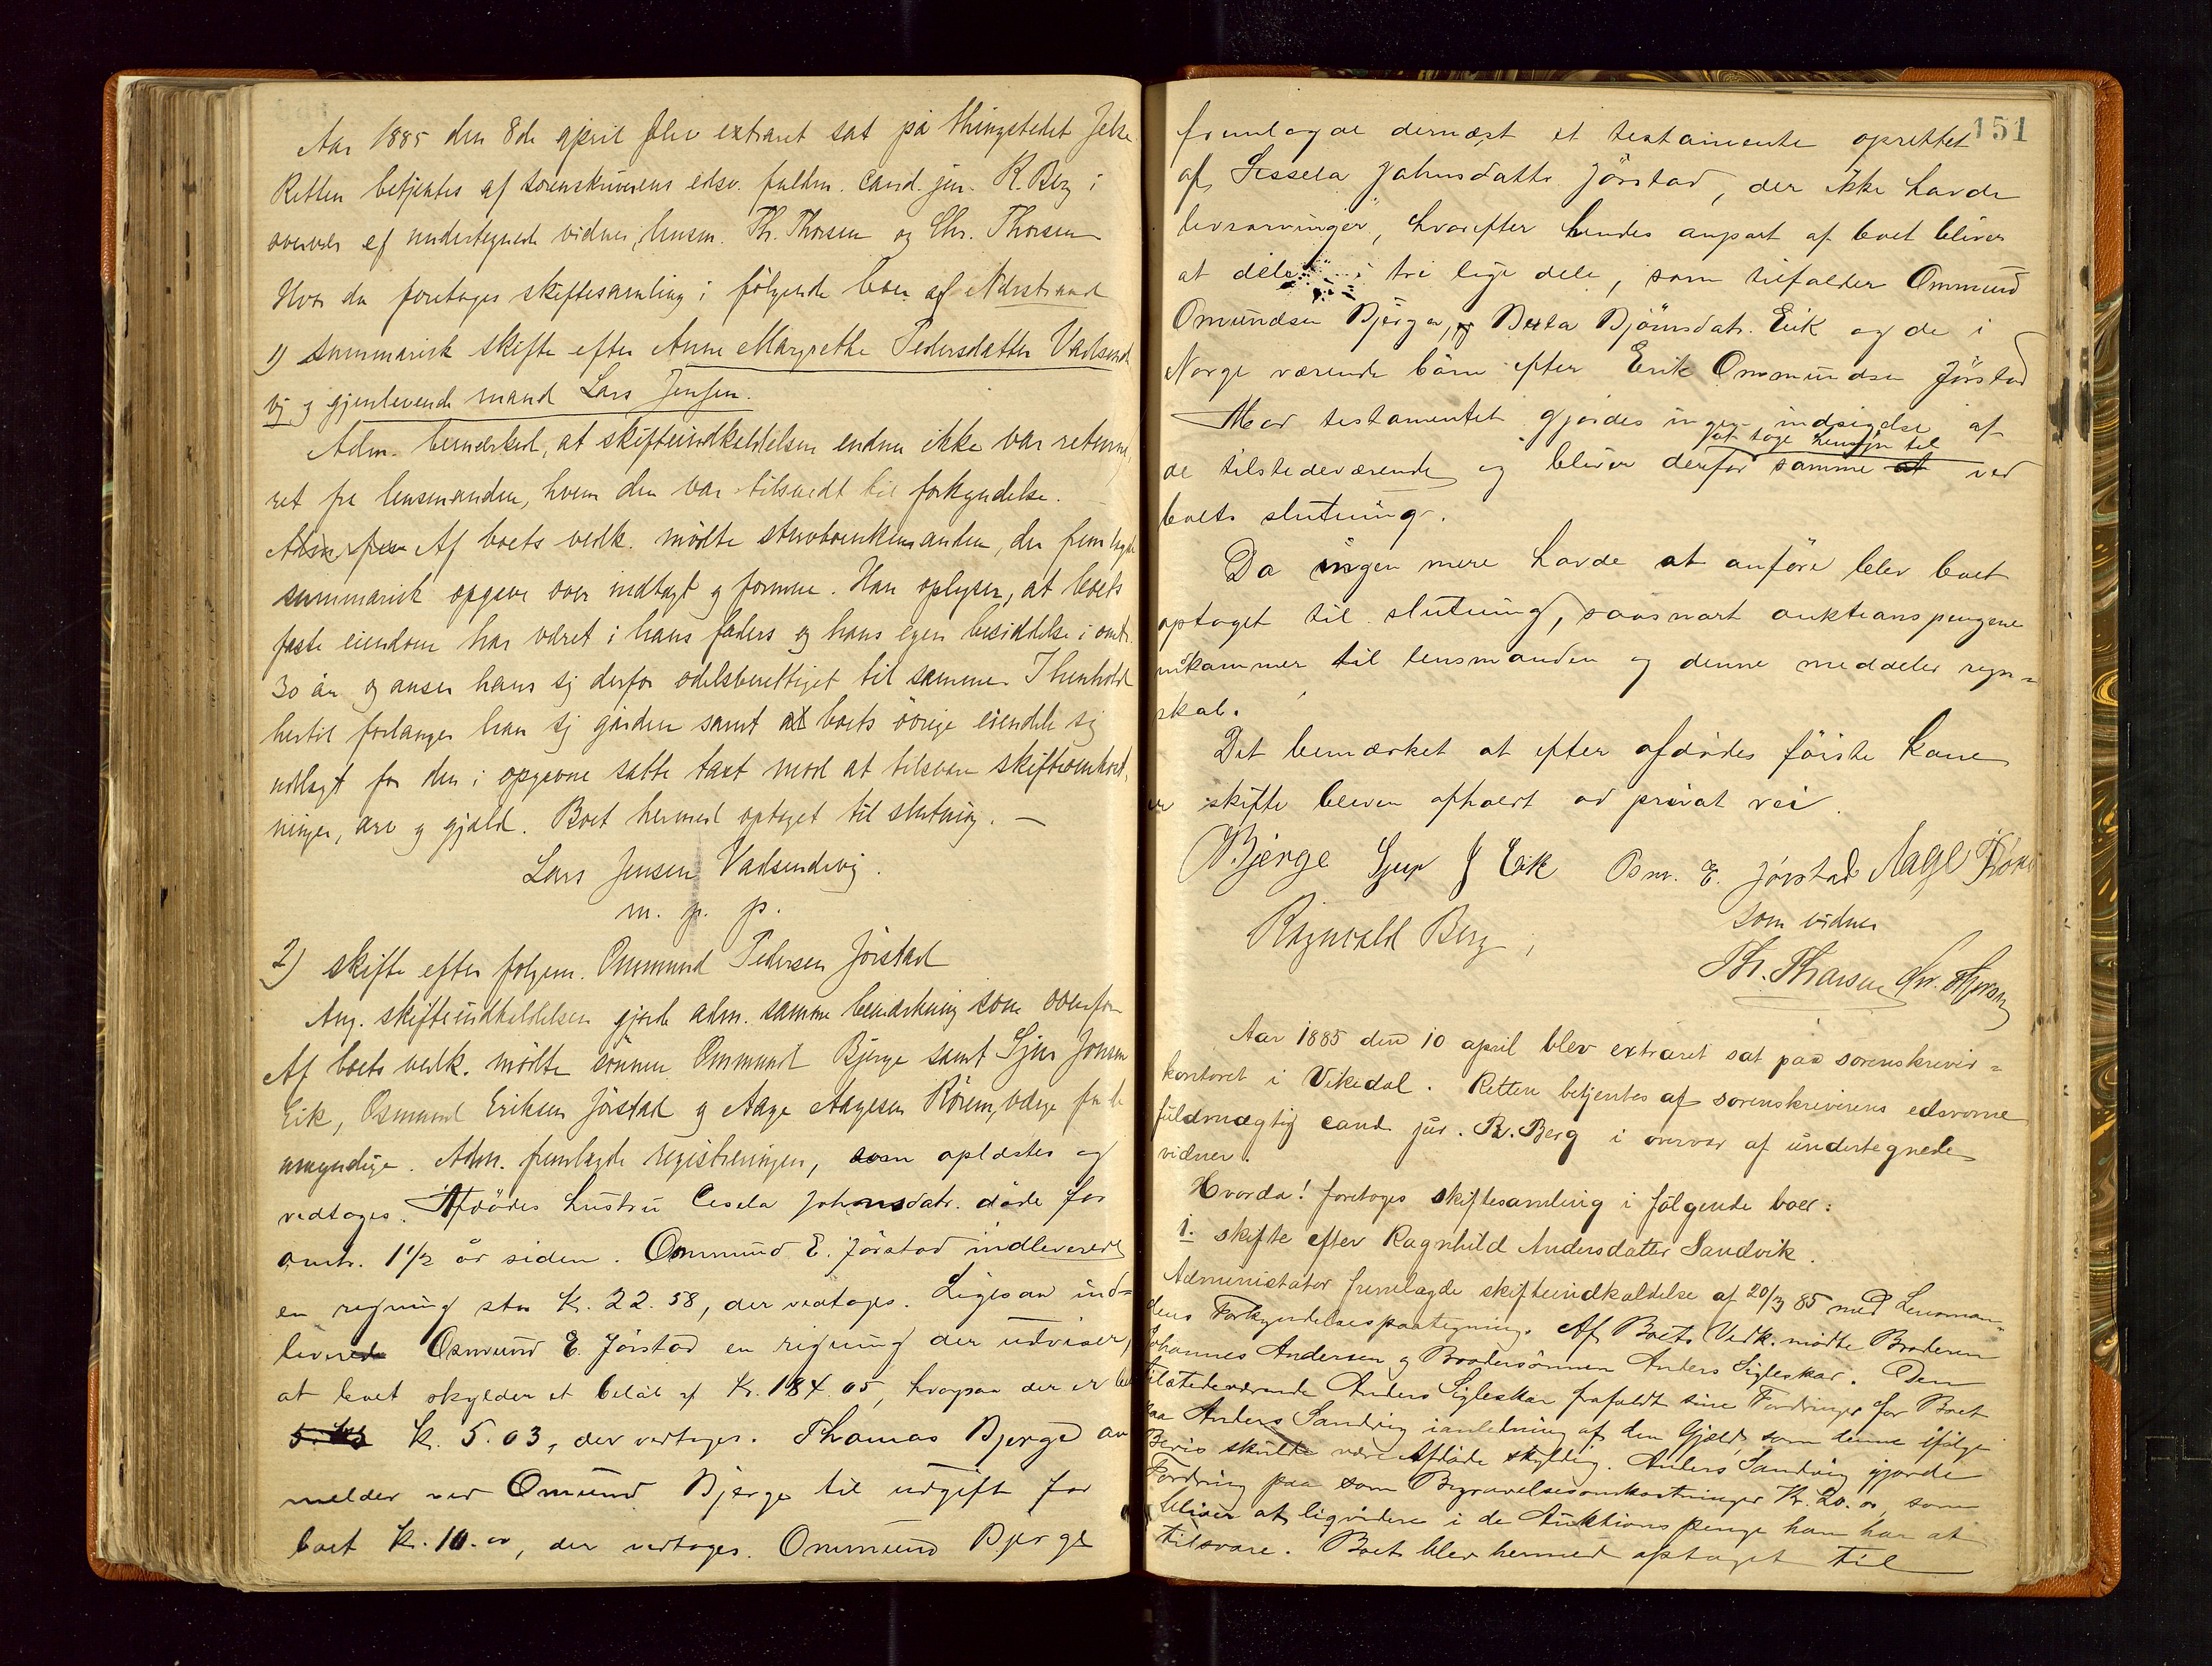 Aar 1885 den 8de april blev extraret sat på thingstedet Jelse
Retten betjentes af sorenskriverens edsv. fuldm. cand. jur. R. Berg i
overvær af undertegnede vidner, lensm. Th. Thorsen og Chr. Thorsen
Hvor da foretoges skiftesamling i følgende boer af Nærstrand
1) summarisk skifte efter Anne Margrethe Pedersdatter Vadsend
vig og gjenlevende mand Lars Jensen.
Adm. bemærked, at skifteindkaldelsen endnu ikke var returne,
ret fra lensmanden, hvem den var tilsendt til forkyndelse.
Adm. frem Af boets vedk. mødte stervboenkemanden, der fremlagde
summarisk opgave over indtægt og formue. Han oplyser, at boets
faste eiendom har været i hans faders og hans egen besiddelse i omtr.
30 år og anser hans sig derfor odelsberettiget til samme. I henhold
hertil forlanger han sig gården samt al boets øvrige eiendele sig
udlagt for den i opgavene satte taxt mod at tilsvare skifteomkost,
ninger, arv og gjæld. Boet hermed optaget til slutning. —
Lars Jensen Vadsendvig.
m. p. p.
2) skifte efter folgem. Ommund Pedersen Jörstad
Ang. skifteindkaldelsen gjorde adm. samme bemærkning som ovenfor
Af boets vedk. mödte sönnen Ommund Bjerge samt Sjur Jonsen
Eik, Osmund Eriksen Jörstad og Aage Aagesen Rörem, værge for de
umyndige. Adm. fremlagde registreringen, som oplæstes og
vedtoges. Afdödes hustru Cesela Johnsdatr. döde for
omtr. 1 1/2 år siden. Ommund E. Jörstad indleverede
en regning stor K. 22.58, der vedtoges. Ligesaa ind=
leverede Osmund E. Jörstad en regning der udviser,
at boet skylder et belöb af Kr. 184.05, hvorpaa der er bet
K. 5.03, der vedtoges. Thomas Bjerge an
melder ved Omund Bjerge til udgift for
boet K. 10.00, der vedtoges. Ommund Bjerge
151
fremlagde dernæst et testamente oprettet
af Sessela Jahnsdattr Jörstad, der ikke havde
livsarvinger, hvorefter hendes anpart af boet bliver
at dele i tre lige dele, som tilfalder Ommund
Omundsen Bjerge, og Berta Björnsdatr. Eik og de i
Norge værende börn efter Erik Ommundsen Jörstad
Mod testamentet gjordes ingen indsigelse af
at tage hensyn til
de tilstedeværende og bliver derfor samme at ved
boets slutning.
Da ingen mere havde at anföre blev boet
optaget til slutning, saasnart auktionspengene
indkommer til lensmanden og denne meddeler regn=
skab.
Det bemærket at efter afdödes förste kone
er skifte bleven afholdt ad privat vei.
O. Bjerge Sjur J Eik Osm. E. Jörstad Aage Röre
Ragnvald Berg,
som vidner
Th. Thorsen Chr. Thorsen
Aar 1885 den 10 april blev extraret sat paa sorenskriver=
kontoret i Vikedal. Retten betjentes af sorenskriverens edsvorne
fuldmægtig cand. jur. R. Berg i overvær af undertegnede
vidner.
Hvorda! foretoges skiftesamling i fölgende boer:
1. skifte efter Ragnhild Andersdatter Sandvik.
Administator fremlagde skifteindkaldelse af 20/3 85 med Lensman-
dens Forkyndelsespaategning. Af Boets Vedk. mödte Broderen
Johannes Andersen og Brodersönnen Anders Sigleskar. Den
tilstedeværende Anders Sigleskar frafaldt sine Fordringer for Boet
paa Anders Sandvig ianledning af den Gjæld, som denne ifölge
Bevis skulde være Afdöde skyldig. Anders Sandvig gjorde
Fordring paa som Begravelsesomkostninger Kr. 20.00, som
bliver at liqvidere i de Auktionspenge han har at
tilsvare. Boet blev hermed optaget til